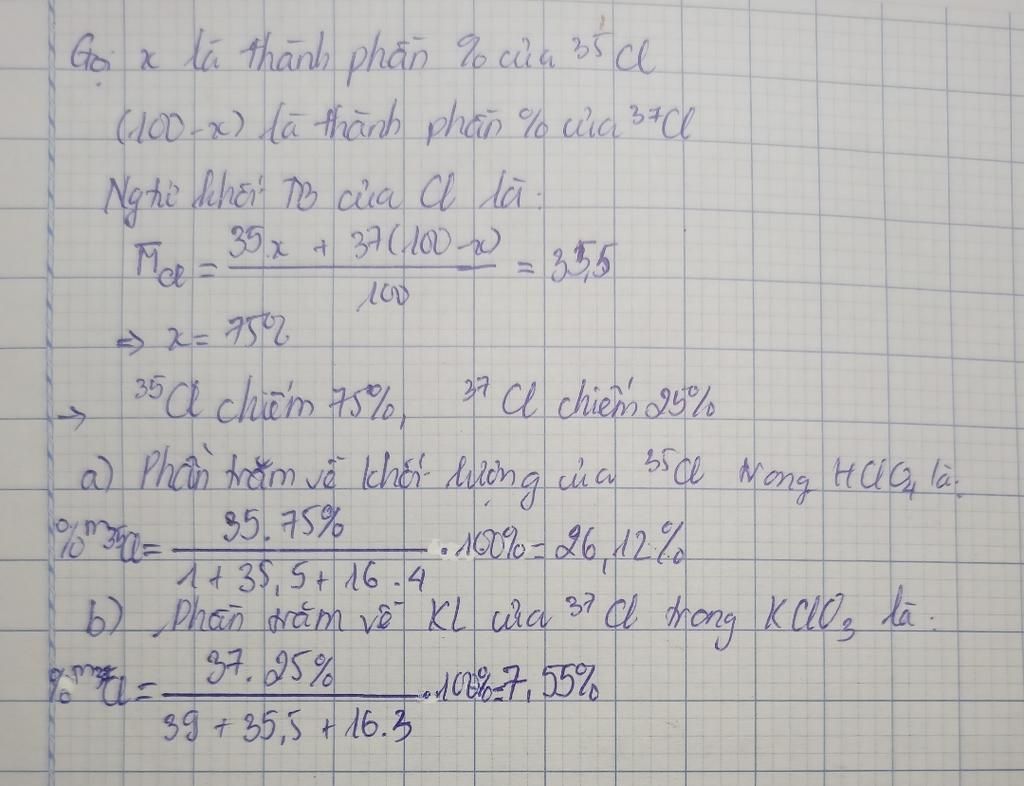 Gọi x là thành phần % của ³⁵Cl
(100-x) là thành phần % của ³⁷Cl
Ngtử khối TB của Cl là:
M̅Cl = (35.x + 37(100-x))/100 = 35,5
⇒ x = 75%
→ ³⁵Cl chiếm 75%, ³⁷Cl chiếm 25%
a) Phần trăm về khối lượng của ³⁵Cl trong HClO₄ là:
%m³⁵Cl = (35.75%)/(1+35,5+16.4) .100% = 26,12%
b) Phần trăm về KL của ³⁷Cl trong KClO₃ là:
%m³⁷Cl = (37.25%)/(39+35,5+16.3) .100% = 7,55%